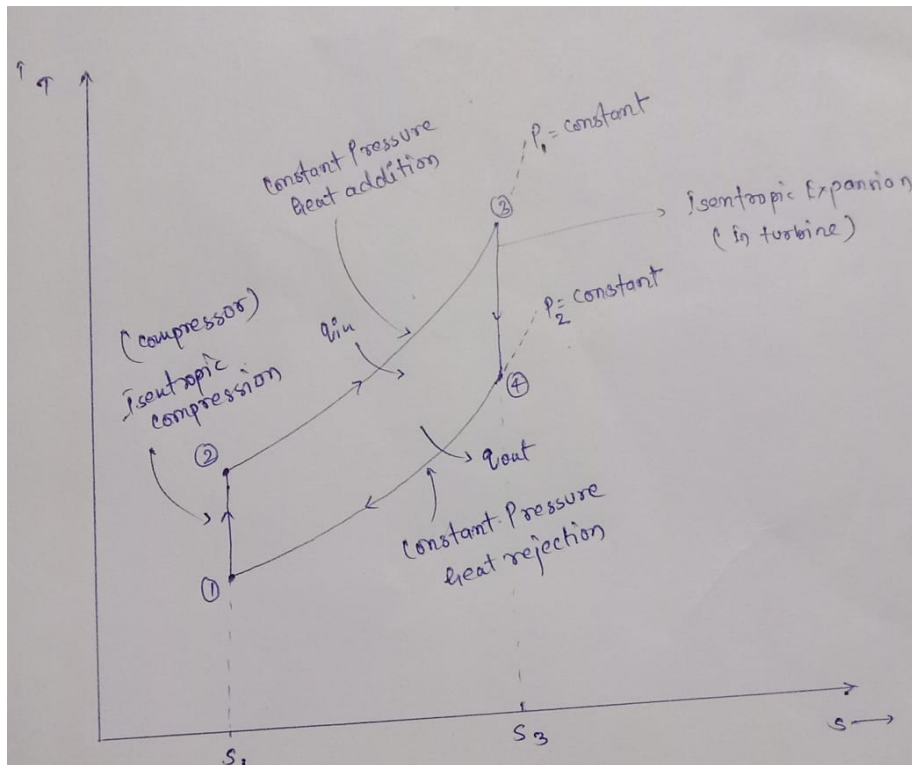 ↑ T
P₁ = constant
constant Pressure
heat addition
③
Isentropic Expansion
(in turbine)
P₂ = constant
(compressor)
Isentropic
compression
qin
④
②
qout
constant Pressure
heat rejection
①
S₁
S₃
S →